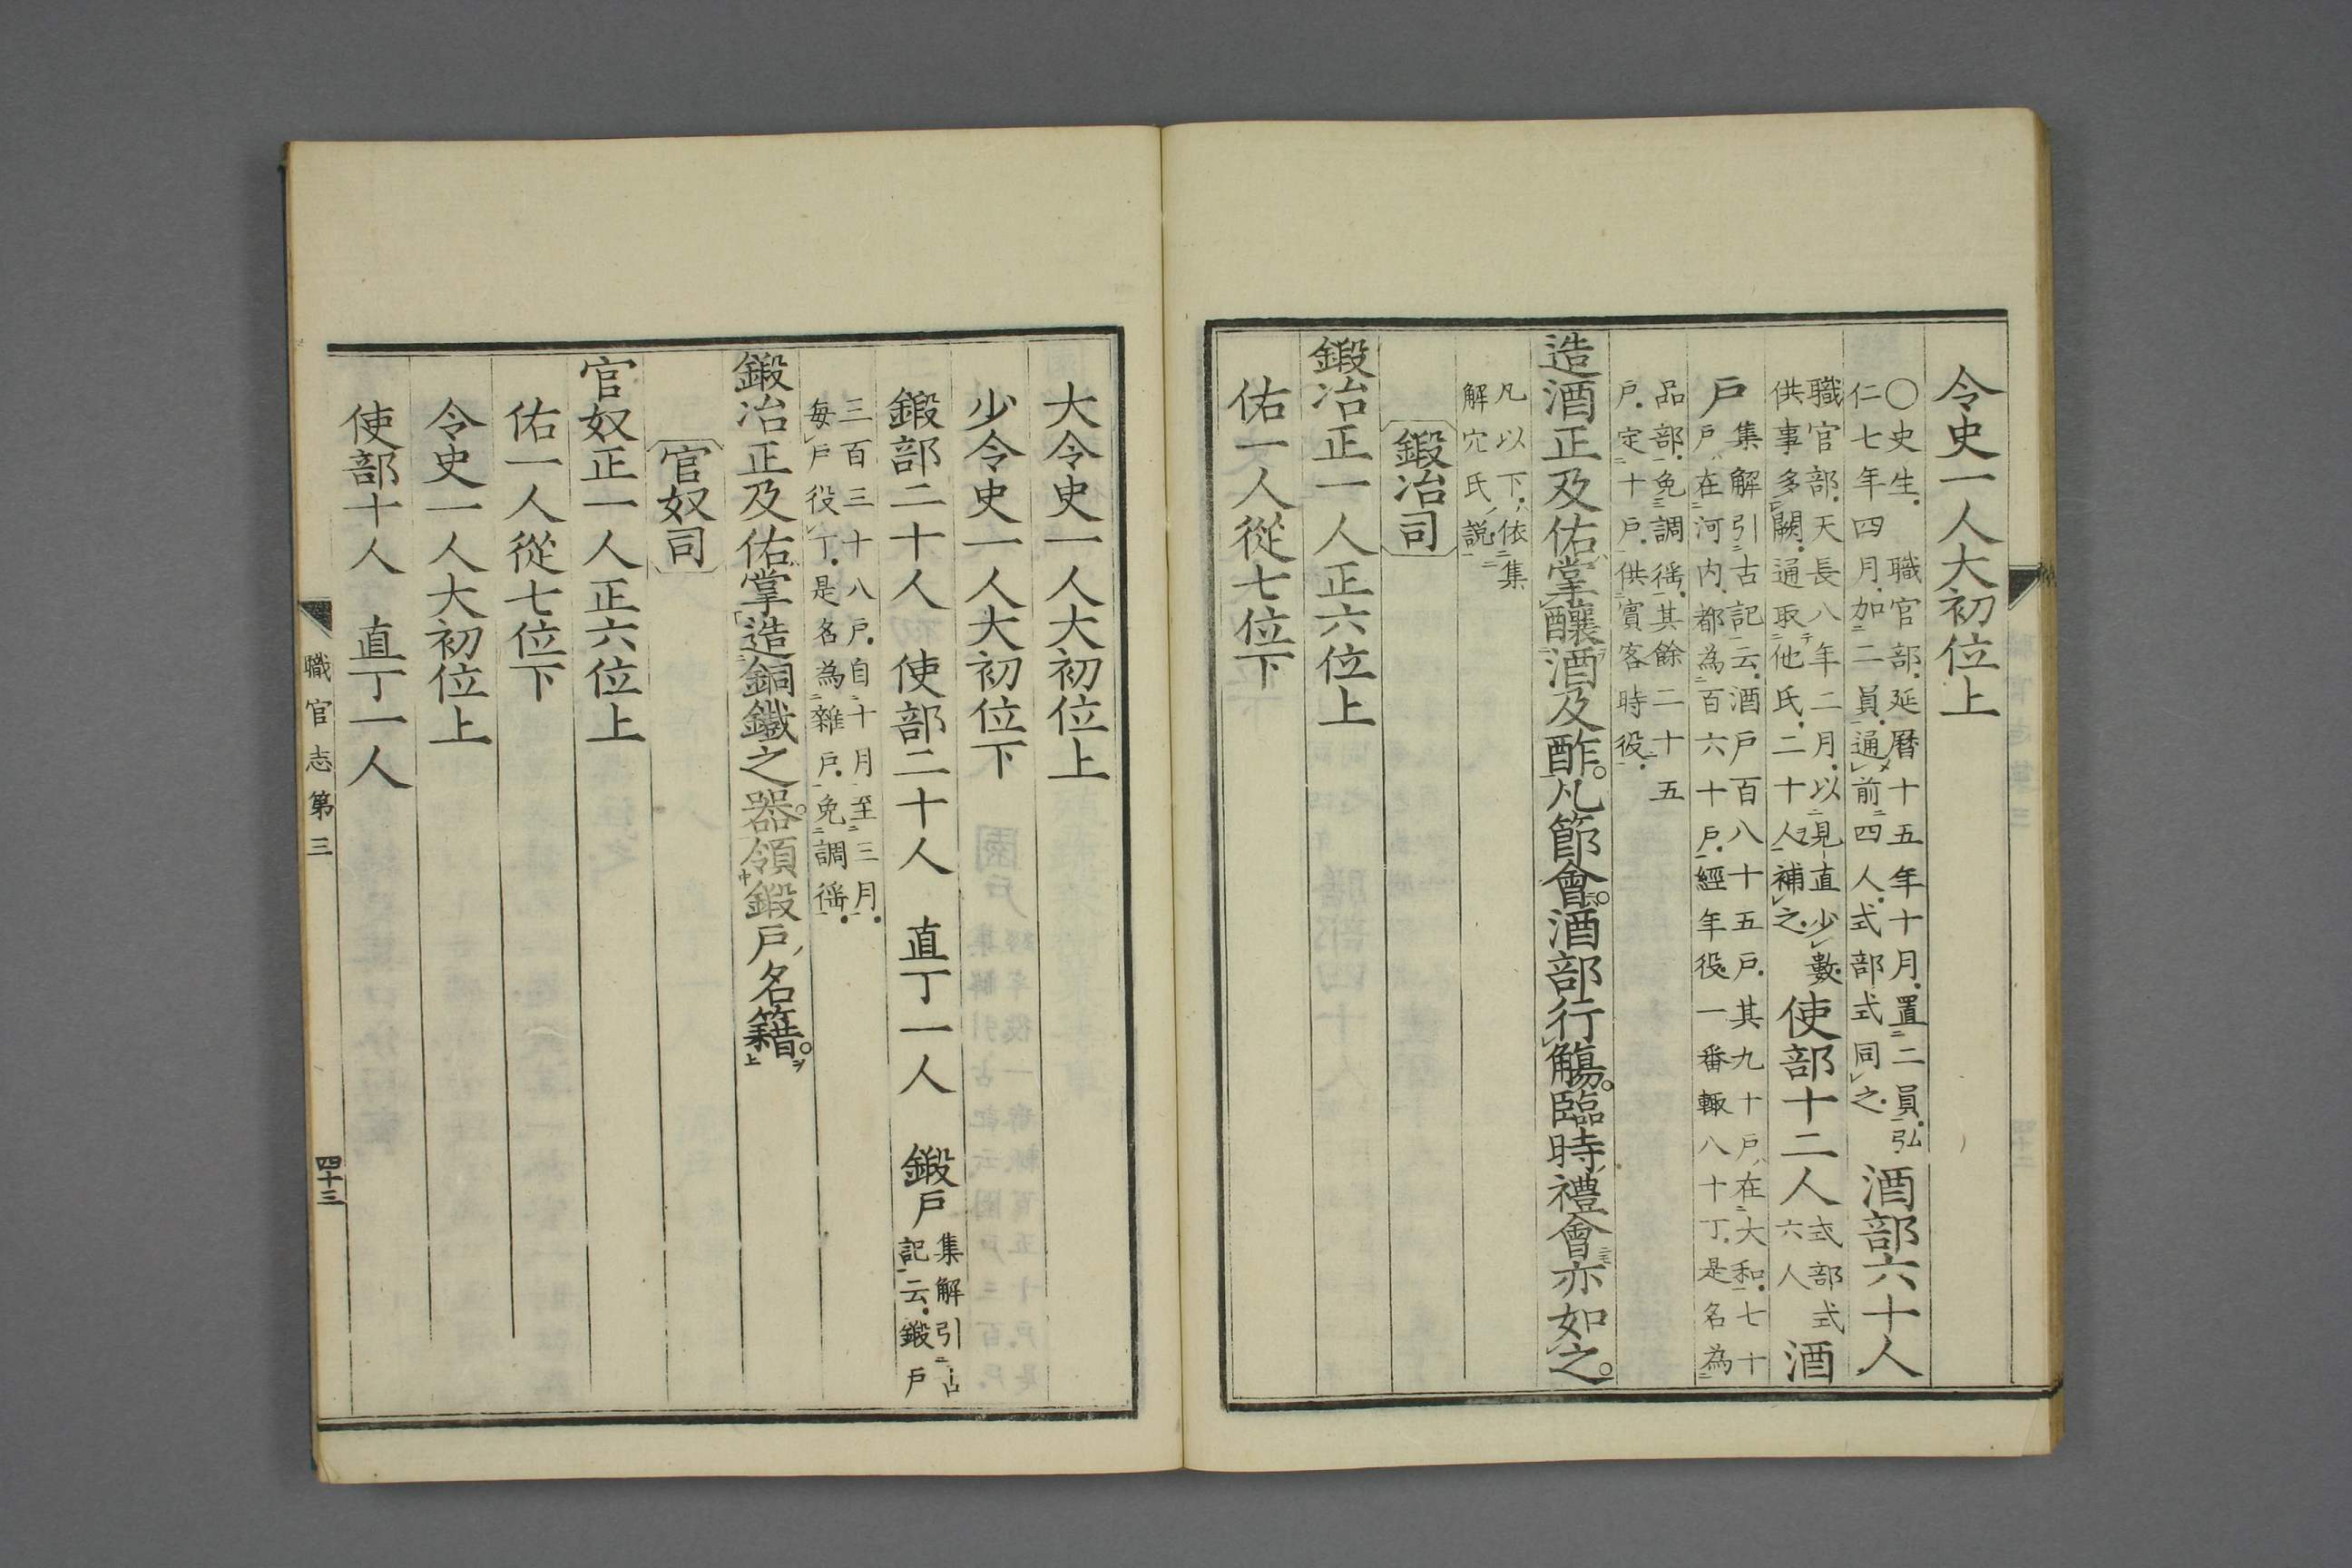 令史一人大初位上
○史生。職官部。延暦十五年十月。置二員。弘
仁七年四月。加二員。通前四人。式部式同之。
酒部六十人
職官部。天長八年二月。以見直少數。
供事多闕。通取他氏。二十人補之。
使部十二人
式部式
六人
酒
戶
集解引古記云。酒戶百八十五戶。其九十戶在大和。七十
戶在河内。都為百六十戶。經年役。一番輙八十丁。是名為
品部。免調徭。其餘二十五
戶。定十戶。供賓客時役。
造酒正及佑掌釀酒及酢。凡節會。酒部行觴。臨時禮會亦如之。
凡以下。依集
解穴氏説
鍛冶司
鍛冶正一人正六位上
佑一人從七位下
大令史一人大初位上
少令史一人大初位下
鍛部二十人 使部二十人 直丁一人 鍛戶
集解引古
記云。鍛戶
三百三十八戶。自十月至三月。
每戶役丁。是名為雜戶。免調徭。
鍛冶正及佑掌造銅鐵之器。領鍛戶名籍。
官奴司
官奴正一人正六位上
佑一人從七位下
令史一人大初位上
使部十人 直丁一人
職官志第三 四十三